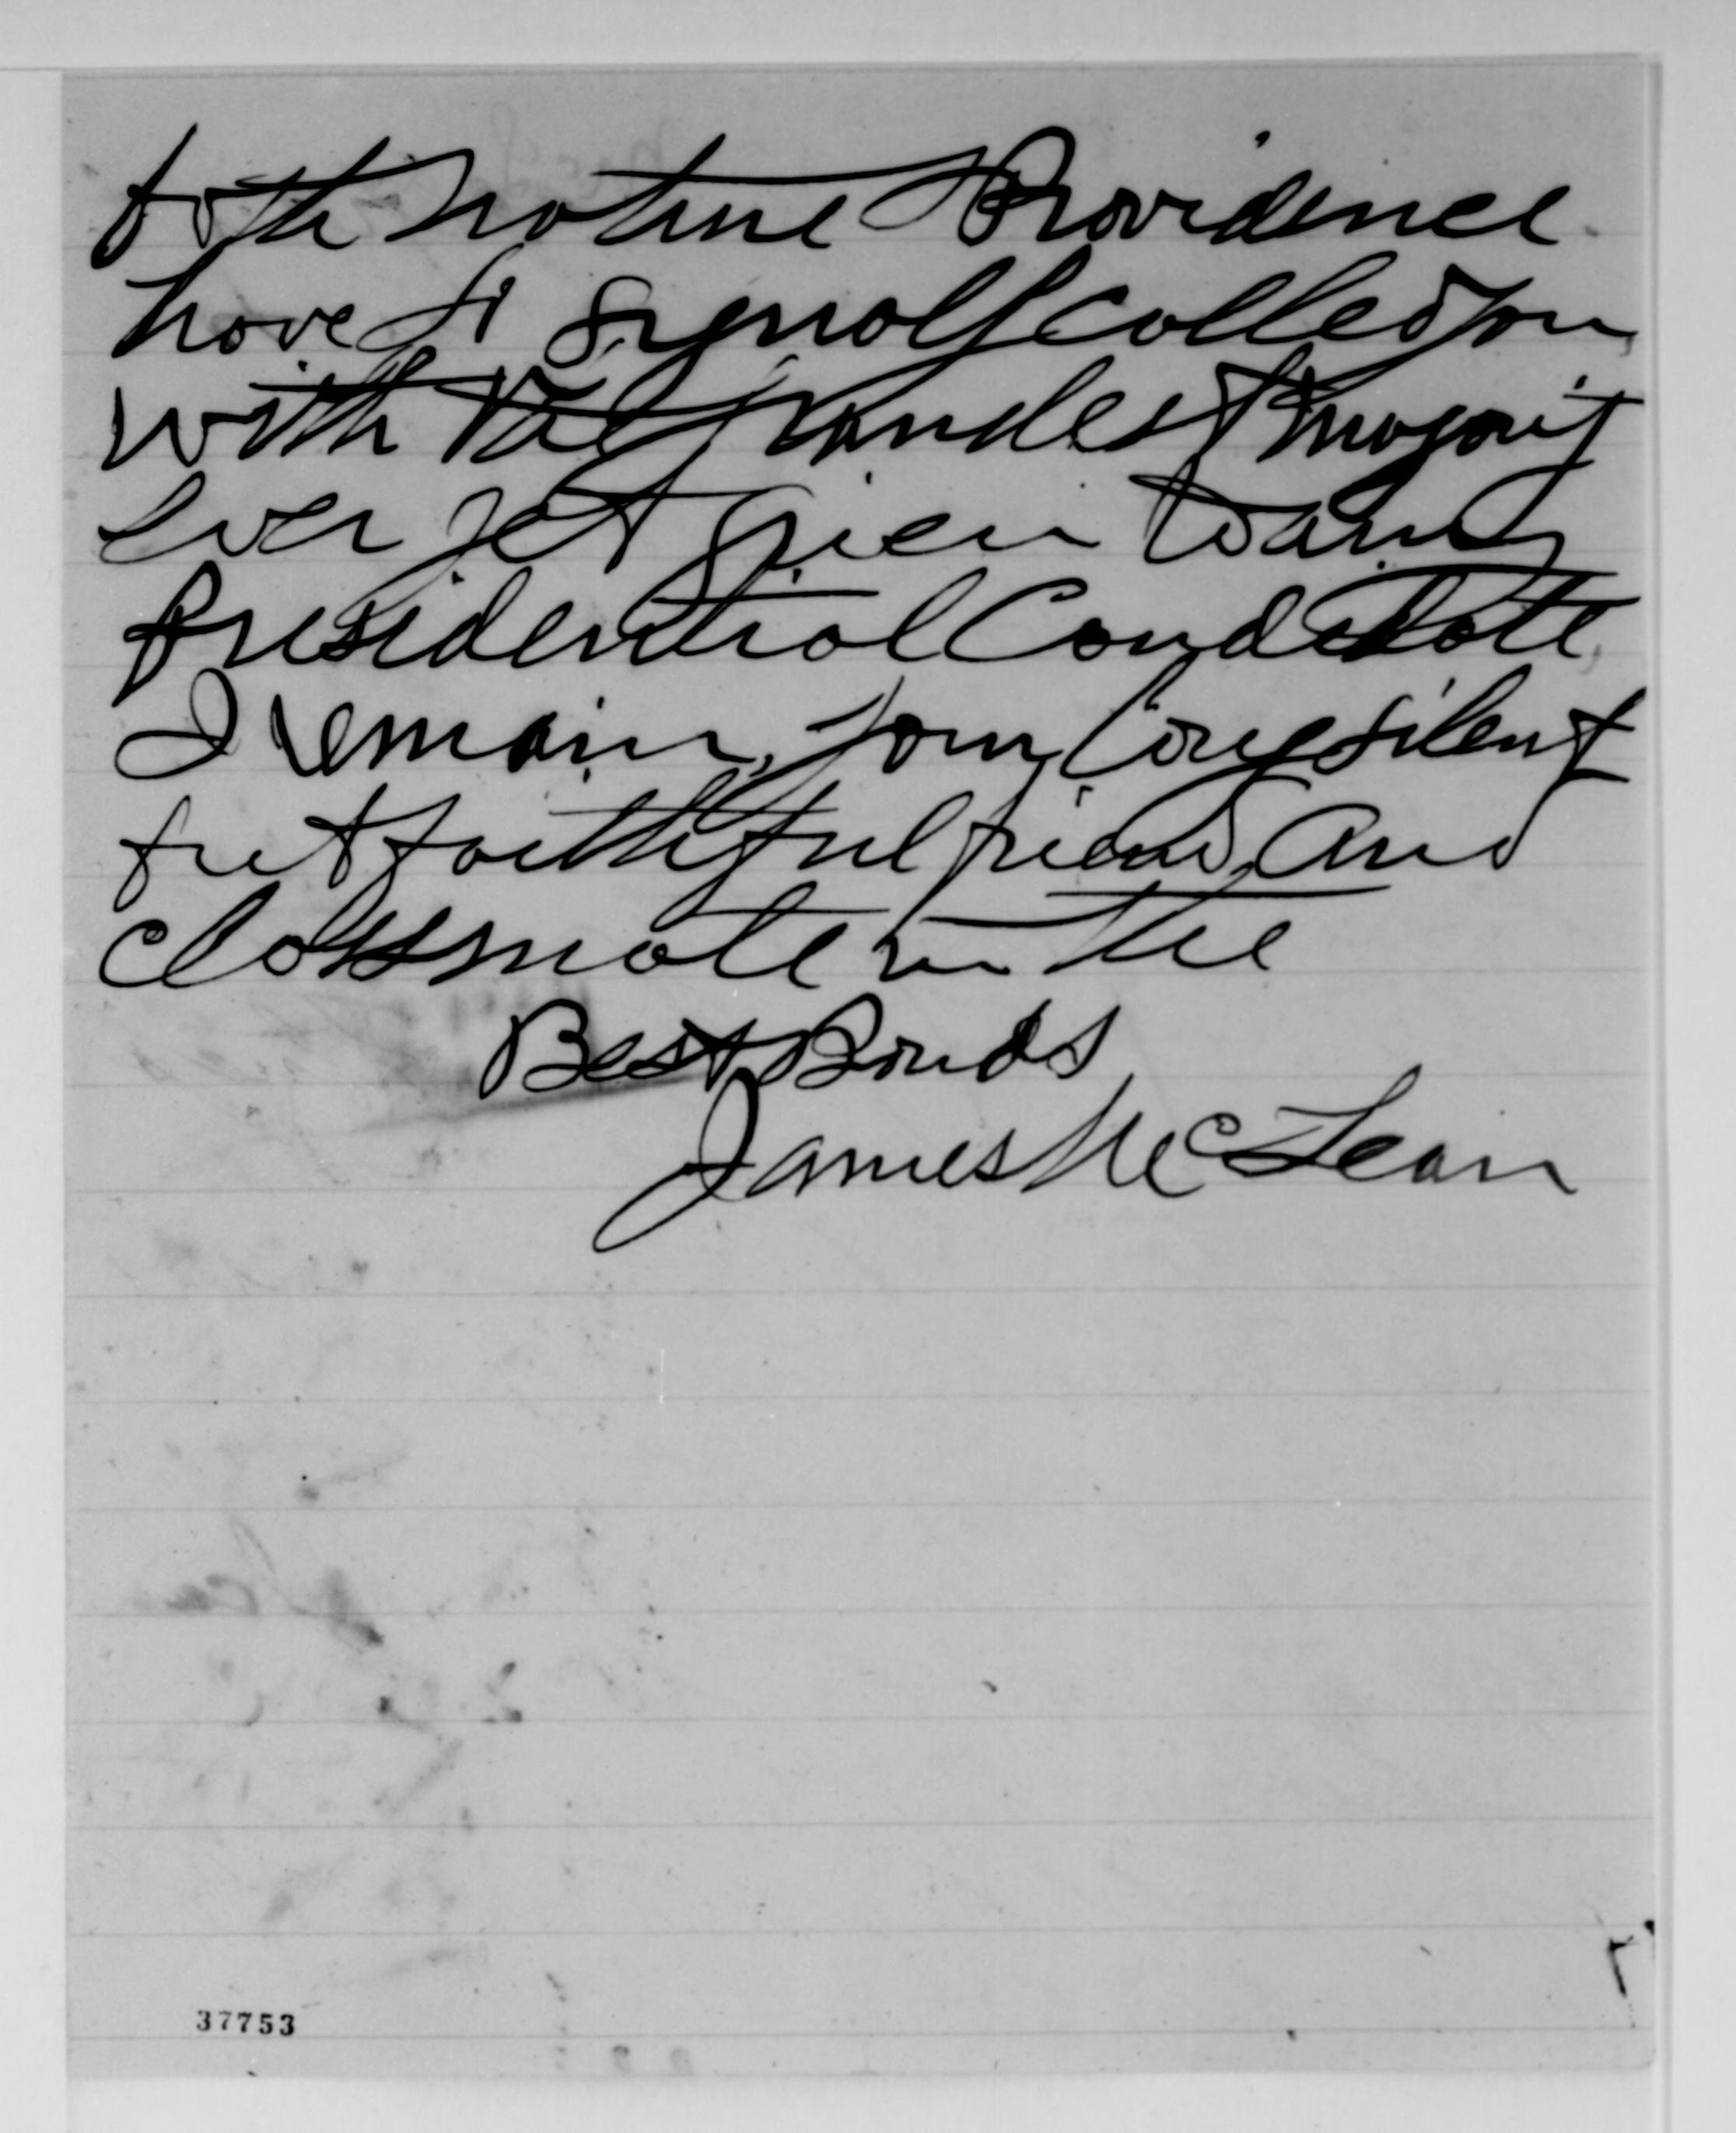 both nature & Providence
have so signally called you
with the grandest majority
ever yet given to any
Presidential Candidate
I remain, your long silent
but faithful friend and
classmate in the
Best Bonds
James McLean
37753